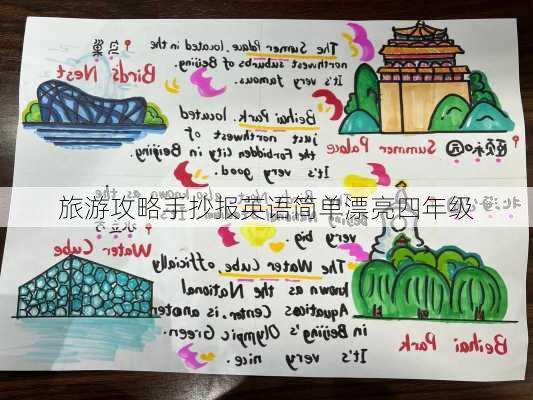 鸟巢
Bird's Nest
The Summer Palace, located in the
northwest suburbs of Beijing.
It's very famous.
Summer Palace
颐和园
Beihai Park, located
just northwest of
the Forbidden City in Beijing.
It's very good.
known as the
旅游攻略手抄报英语简单漂亮四年级
very big.
Water Cube
The Water Cube officially
known as the National
Aquatics Center, is
in Beijing's Olympic Green.
It's very nice.
Beihai Park